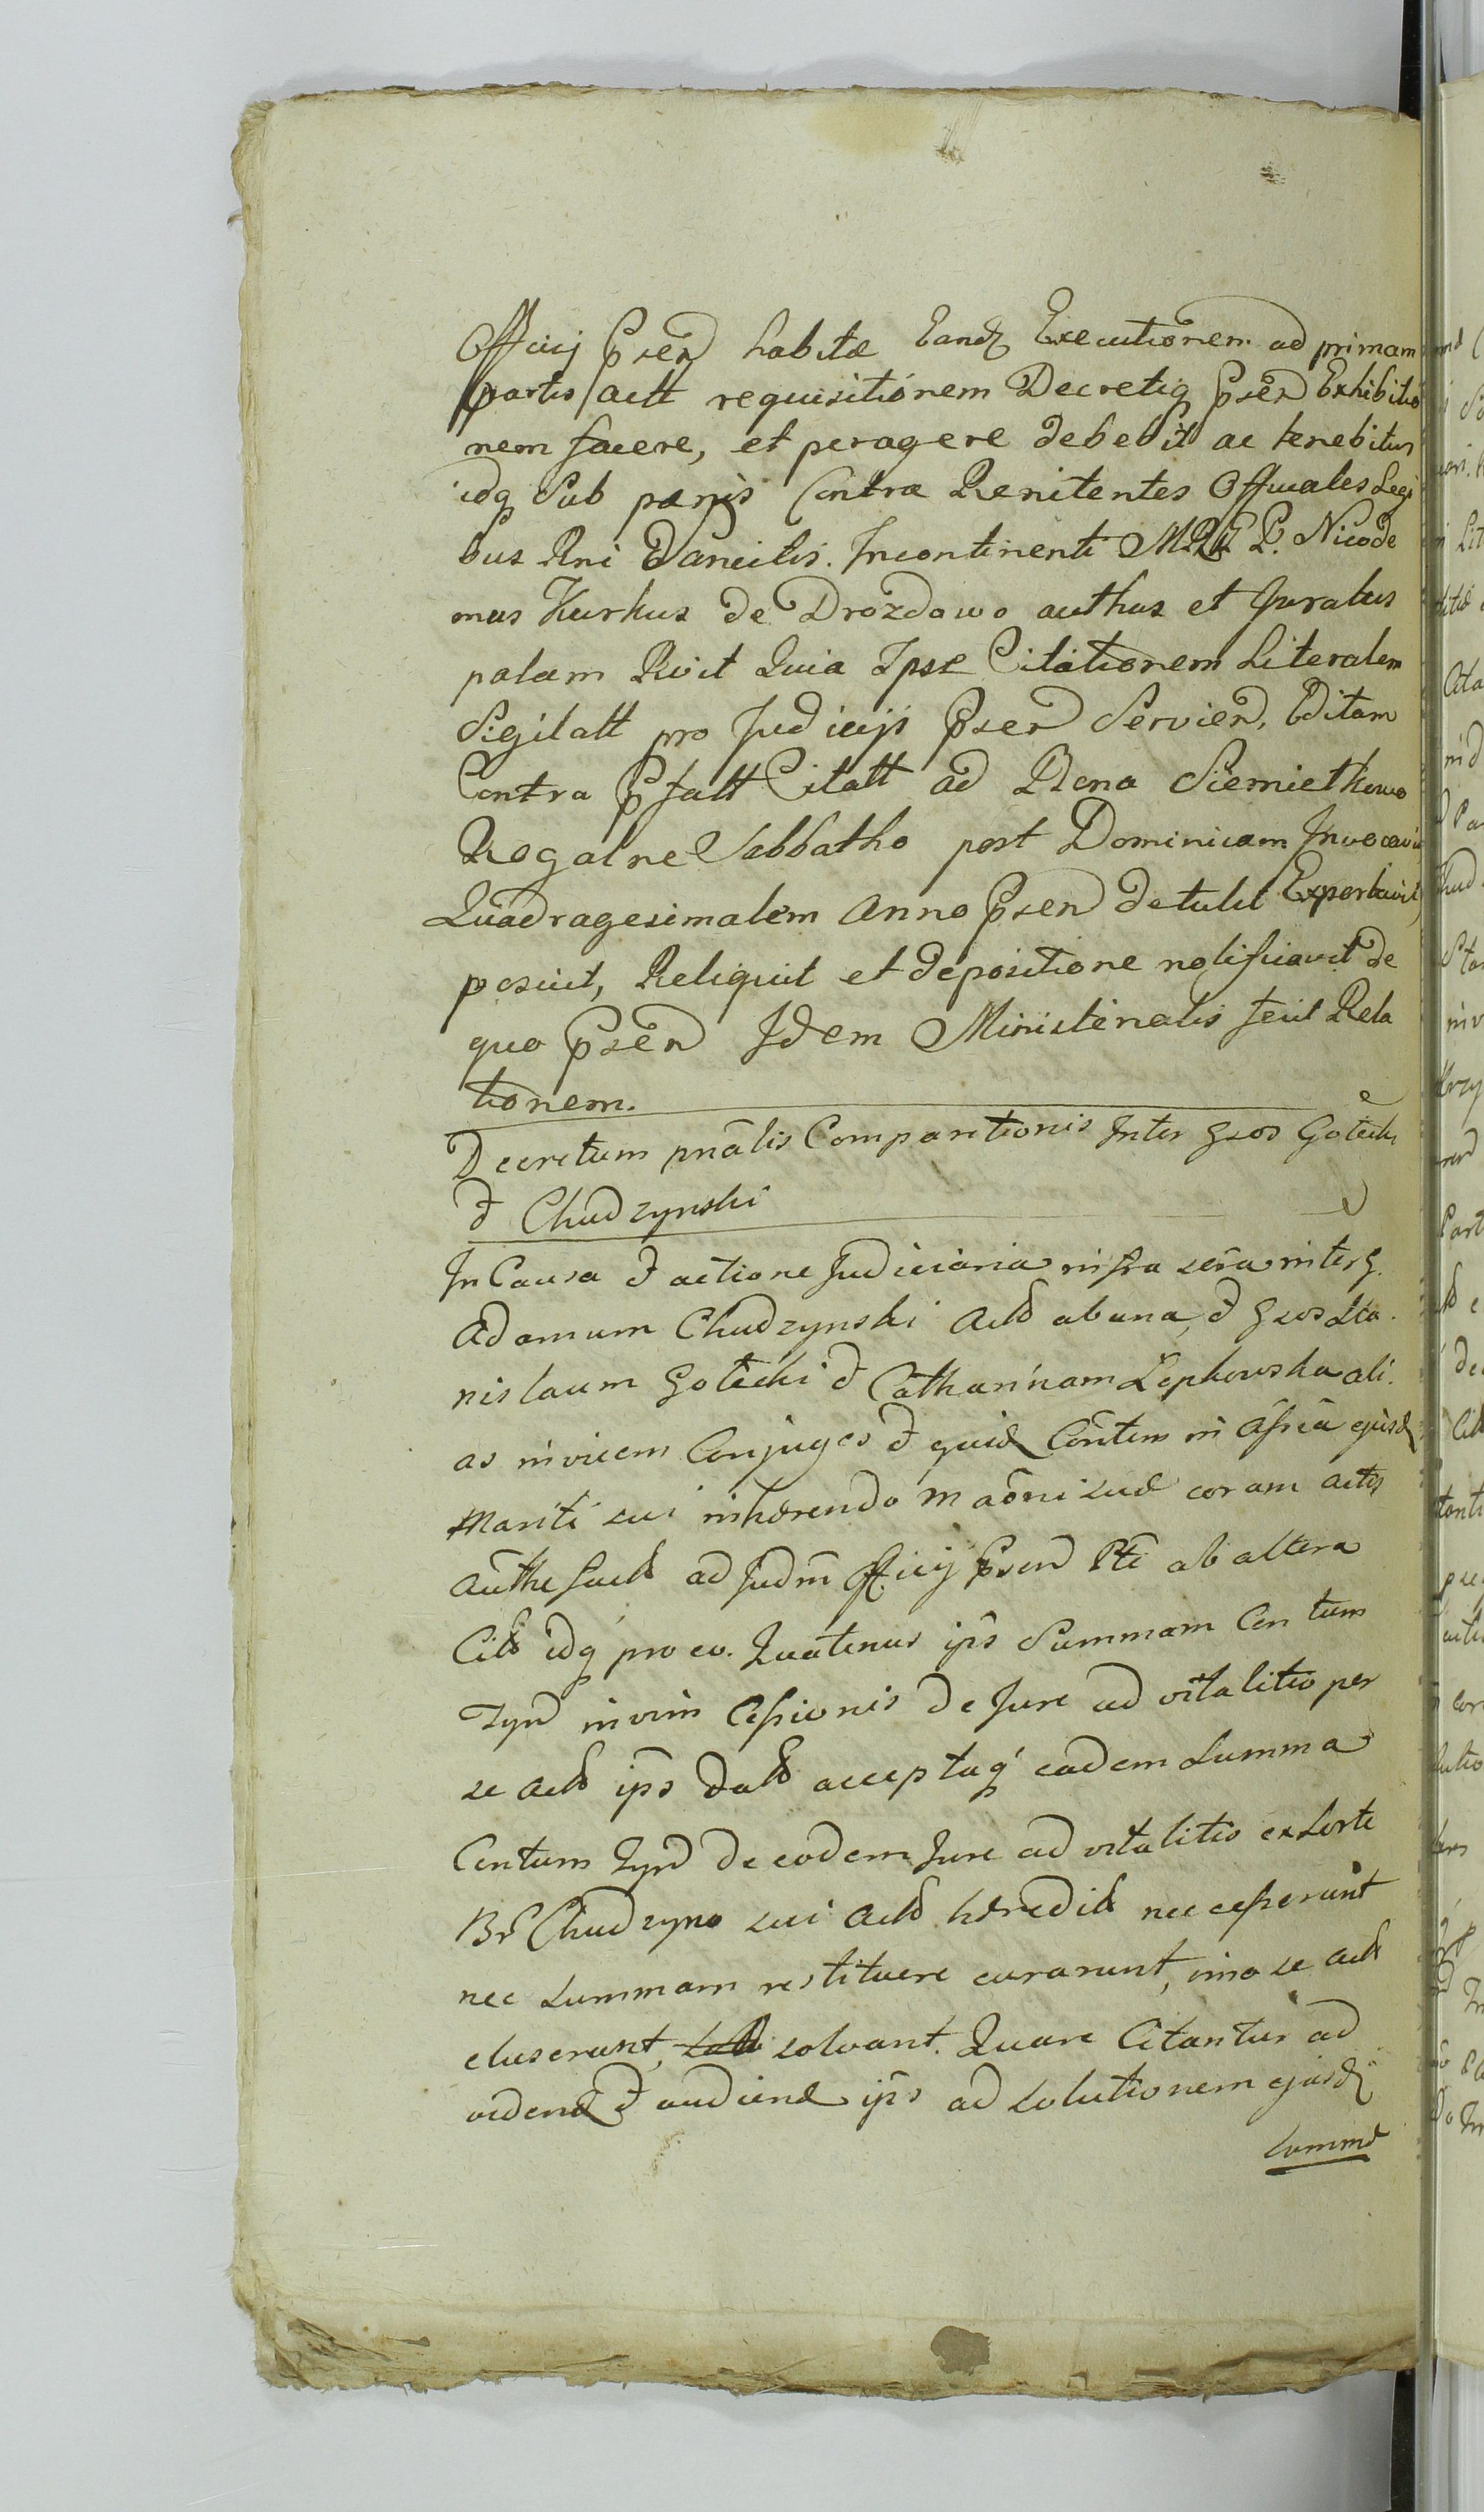 Officij Psen habitæ Eandq Executionem ad primam
partis actt requisitionem Decretiq Psen Exhibitio
nem facere, et peragere debebit ac tenebitur
idq Sub pænis Contra Renitentes Officiales Legi
bus Rni Sancitis. Incontinenti MRGL P. Nicode
mus Kurkus de Drozdowo authus et Juratus
palam Rvit Quia Ipse Citationem Literalem
Sigilatt pro Judicijs Psen Servien, Editam
Contra Pfatt Citatt ad Bona Siemietkowo
Rogalne Sabbatho post Dominicam Invocavit
Quadragesimalem Anno Psen detulit Exportavit,
posuit, Reliquit et depositione notificavit de
quo Psen Idem Ministerialis fecit Rela
tionem.
Decretum pnãlis Comparitionis Inter Gsos Gotecki
& Chudzynski
In Causa & actione Judiciaria infra scra inter G.
Adamum Chudzynski Actt ab una, & Gsos Sta
nislaum Gotecki & Catharinam Lępkowska ali
as invicem Conjuges & quid Contem in Afsẽa ejusd
Mariti sui inhærendo Maõni suæ coram actis
authe factt ad Judm Officij Psen Pte ab altera
Citt idq pro eo. Quatenus ips Summam Centum
Tynf in vim Cessionis de Jure advitalitio per
se actt ips datt acceptaq eadem Summa
Centum Tynf de eodem Jure advitalitio ex Sorte
Br Chudzyno sui Actt hæredit nec cesserunt
nec Summam restituere curarunt, imo se actt
eluserunt, solvant. Quare Citantur ad
videnđ & audienđ ips ad solutionem ejusdq
Summæ